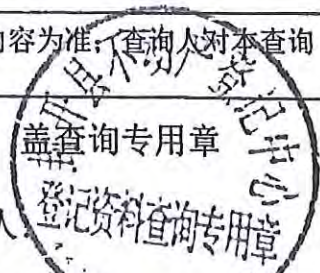 内容为准；（查询人对本查询
盖查询专用章
人：
不动产登记中心
登记资料查询专用章